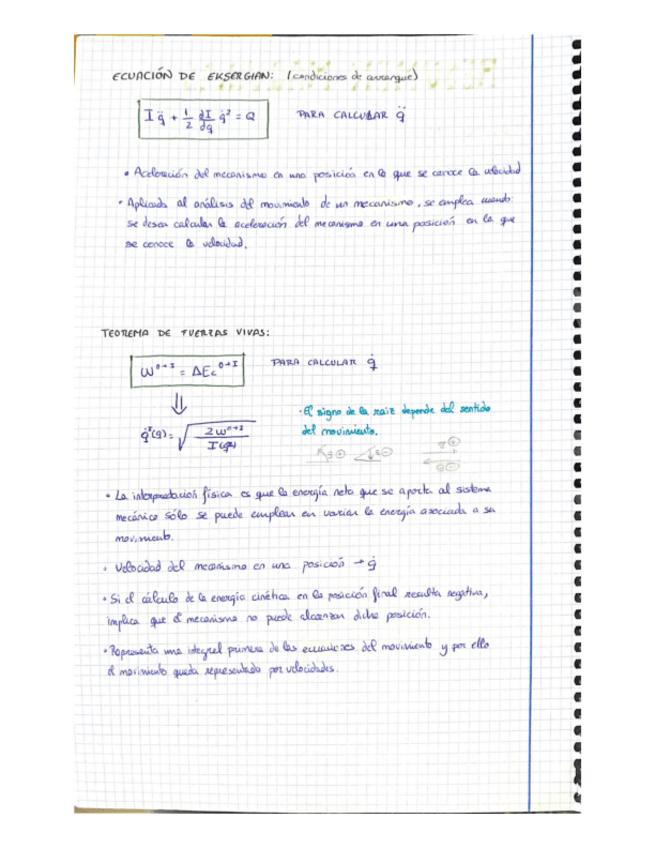 ECUACIÓN DE EKSERGIAN: (condiciones de arranque)
I q̈ + 1/2 dI/dq q̇² = Q PARA CALCULAR q̈
• Aceleración del mecanismo en una posición en la que se conoce la velocidad
• Aplicada al análisis del movimiento de un mecanismo, se emplea cuando
se desea calcular la aceleración del mecanismo en una posición en la que
se conoce la velocidad.
TEOREMA DE FUERZAS VIVAS:
W⁰→ᴵ = ΔEc⁰→ᴵ PARA CALCULAR q̇
⇓
• El signo de la raiz depende del sentido
del movimiento.
• La interpretación física es que la energía neta que se aporta al sistema
mecánico sólo se puede emplear en variar la energía asociada a su
movimiento.
• Velocidad del mecanismo en una posición → q̇
• Si el cálculo de la energía cinética en la posición final resulta negativa,
implica que el mecanismo no puede alcanzar dicha posición.
• Representa una integral primera de las ecuaciones del movimiento y por ello
el movimiento queda representado por velocidades.